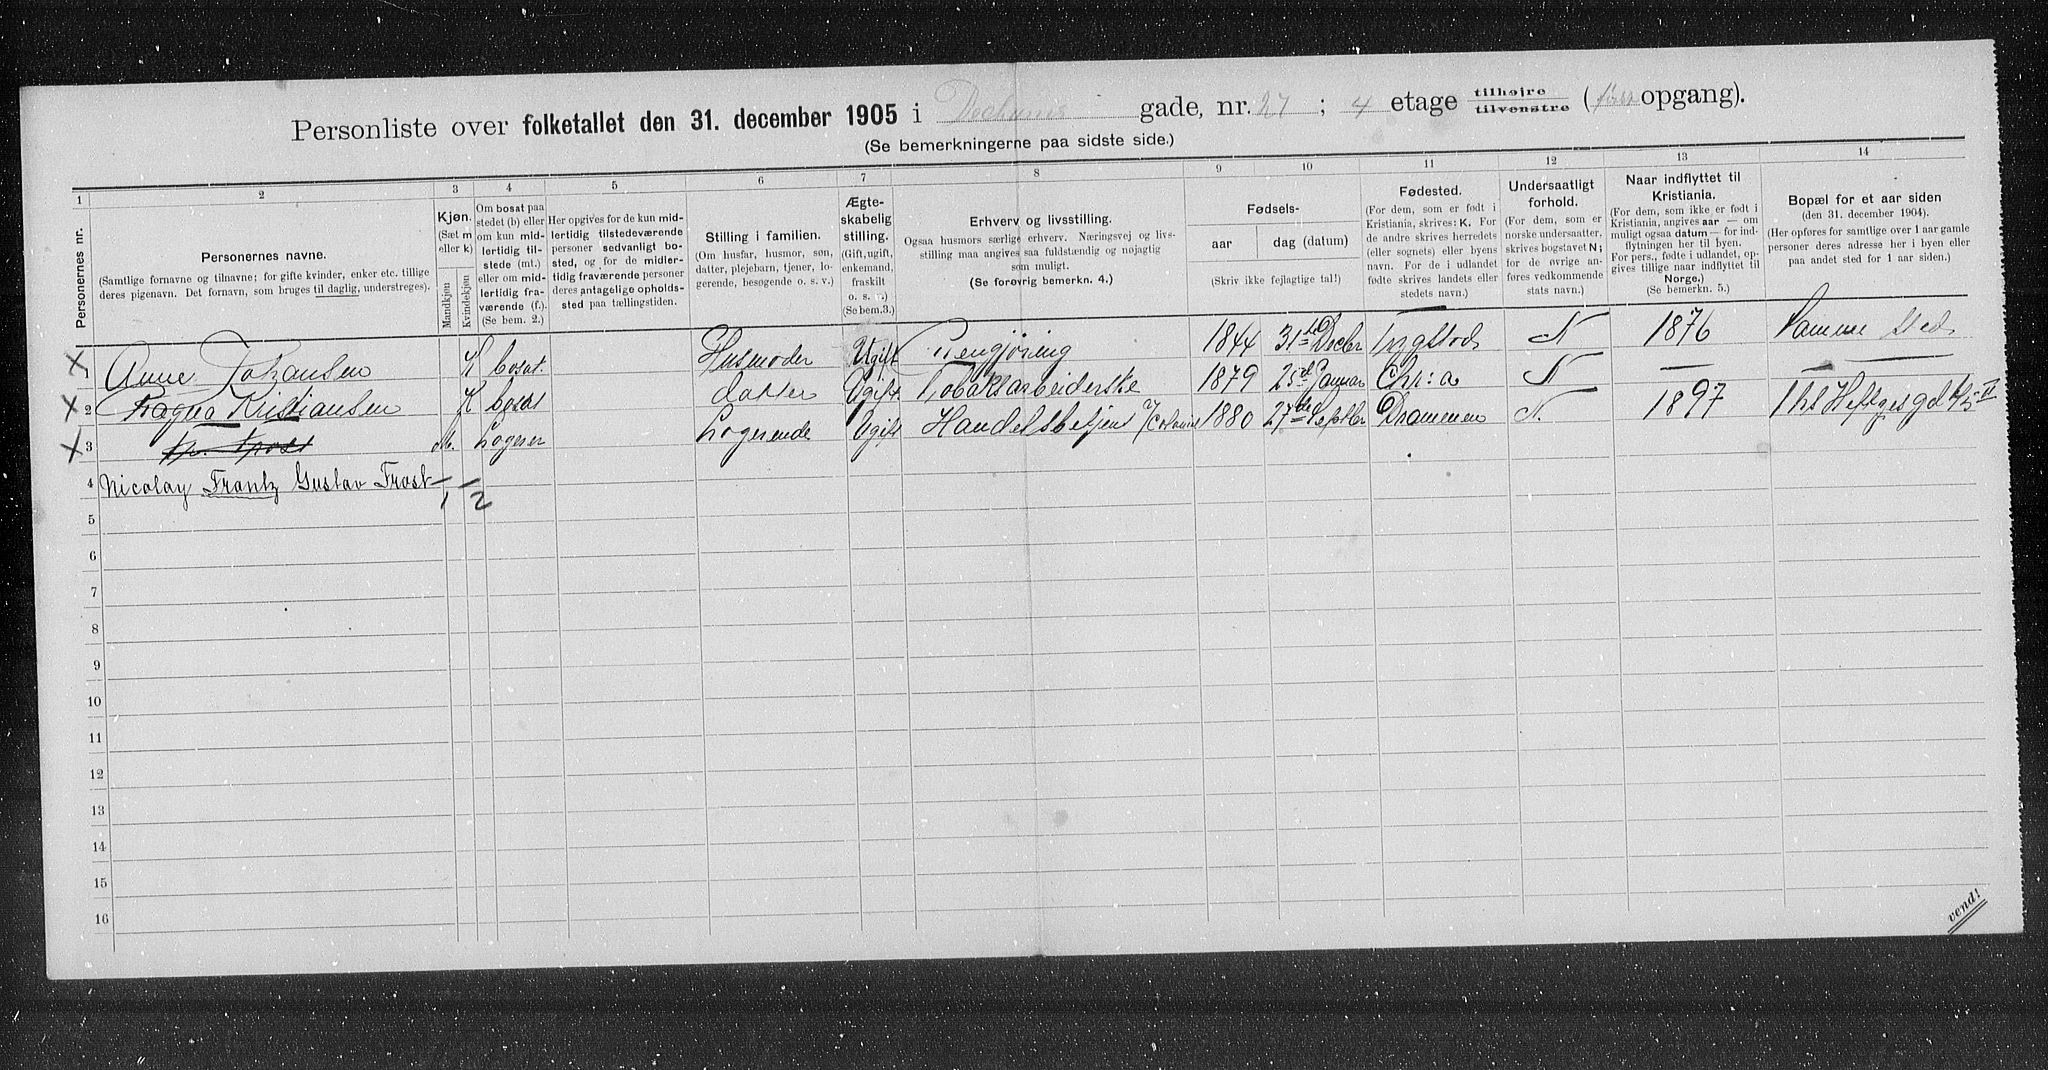 Personliste over folketallet den 31. december 1905 i Dechunes gade, nr. 27 ; 4 etage tilhøjre tilvenstre ( opgang).
(Se bemerkningerne paa sidste side.)
1 2 3 4 5 6 7 8 9 10 11 12 13 14
Personernes nr.
Personernes navne.
(Samtlige fornavne og tilnavne; for gifte kvinder, enker etc. tillige
deres pigenavn. Det fornavn, som bruges til daglig, understreges).
Kjøn.
(Sæt m
eller k)
Mandkjøn
Kvindekjøn
Om bosat paa
stedet (b) eller
om kun mid-
lertidig til-
stede (mt.)
eller om mid-
lertidig fra-
værende (f.)
(Se bem. 2.)
Her opgives for de kun mid-
lertidig tilstedeværende
personer sedvanligt bo-
sted, og for de midler-
tidig fraværende personer
deres antagelige opholds-
sted paa tællingstiden.
Stilling i familien.
(Om husfar, husmor, søn,
datter, plejebarn, tjener, lo-
gerende, besøgende o. s. v.)
Ægte-
skabelig
stilling.
(Gift, ugift,
enkemand,
fraskilt
o. s. v.)
(Se bem.3.)
Erhverv og livsstilling.
Ogsaa husmors særlige erhverv. Næringsvej og livs-
stilling maa angives saa fuldstændig og nøjagtig
som muligt.
(Se forøvrig bemerkn. 4.)
Fødsels-
aar
dag (datum)
(Skriv ikke fejlagtige tal!)
Fødested.
(For dem, som er født i
Kristiania, skrives: K. For
de andre skrives herredets
(eller sognets) eller byens
navn. For de i udlandet
fødte skrives landets eller
stedets navn.)
Undersaatligt
forhold.
(For dem, som er
norske undersaatter,
skrives bogstavet N;
for de øvrige an-
føres vedkommende
stats navn.)
Naar indflyttet til
Kristiania.
(For dem, som ikke er født i
Kristiania, angives aar — om
muligt ogsaa datum — for ind-
flytningen her til byen.
For pers., fødte i udlandet, op-
gives tillige naar indflyttet til
Norge.)
(Se bemerkn. 5.)
Bopæl for et aar siden
(den 31. december 1904).
(Her opføres for samtlige over 1 aar gamle
personer deres adresse her i byen eller
paa andet sted for 1 aar siden.)
1 Anne Johansen K bosat. Husmoder Ugift Rengjøring 1844 31te Decbr N 1876 Samme sted
2 Ragna Kristiansen K bosat datter Ugift Tobaksarbeiderske 1879 25de Januar Chr:a N —
3 Hr. Frost m. Logerer Logerende Ugift Handelsbetjent 1880 27de Septbr Drammen N. 1897
4 Nicolay Frantz Gustav Frost 1/2
5
6
7
8
9
10
11
12
13
14
15
16
vend!